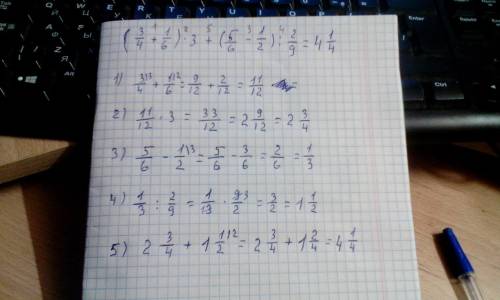 (3/4 + 1/6) · 3 + (5/6 - 1/2) : 2/9 = 4 1/4
1) 3/4 + 1/6 = 9/12 + 2/12 = 11/12 =
2) 11/12 · 3 = 33/12 = 2 9/12 = 2 3/4
3) 5/6 - 1/2 = 5/6 - 3/6 = 2/6 = 1/3
4) 1/3 : 2/9 = 1/3 · 9/2 = 3/2 = 1 1/2
5) 2 3/4 + 1 1/2 = 2 3/4 + 1 2/4 = 4 1/4